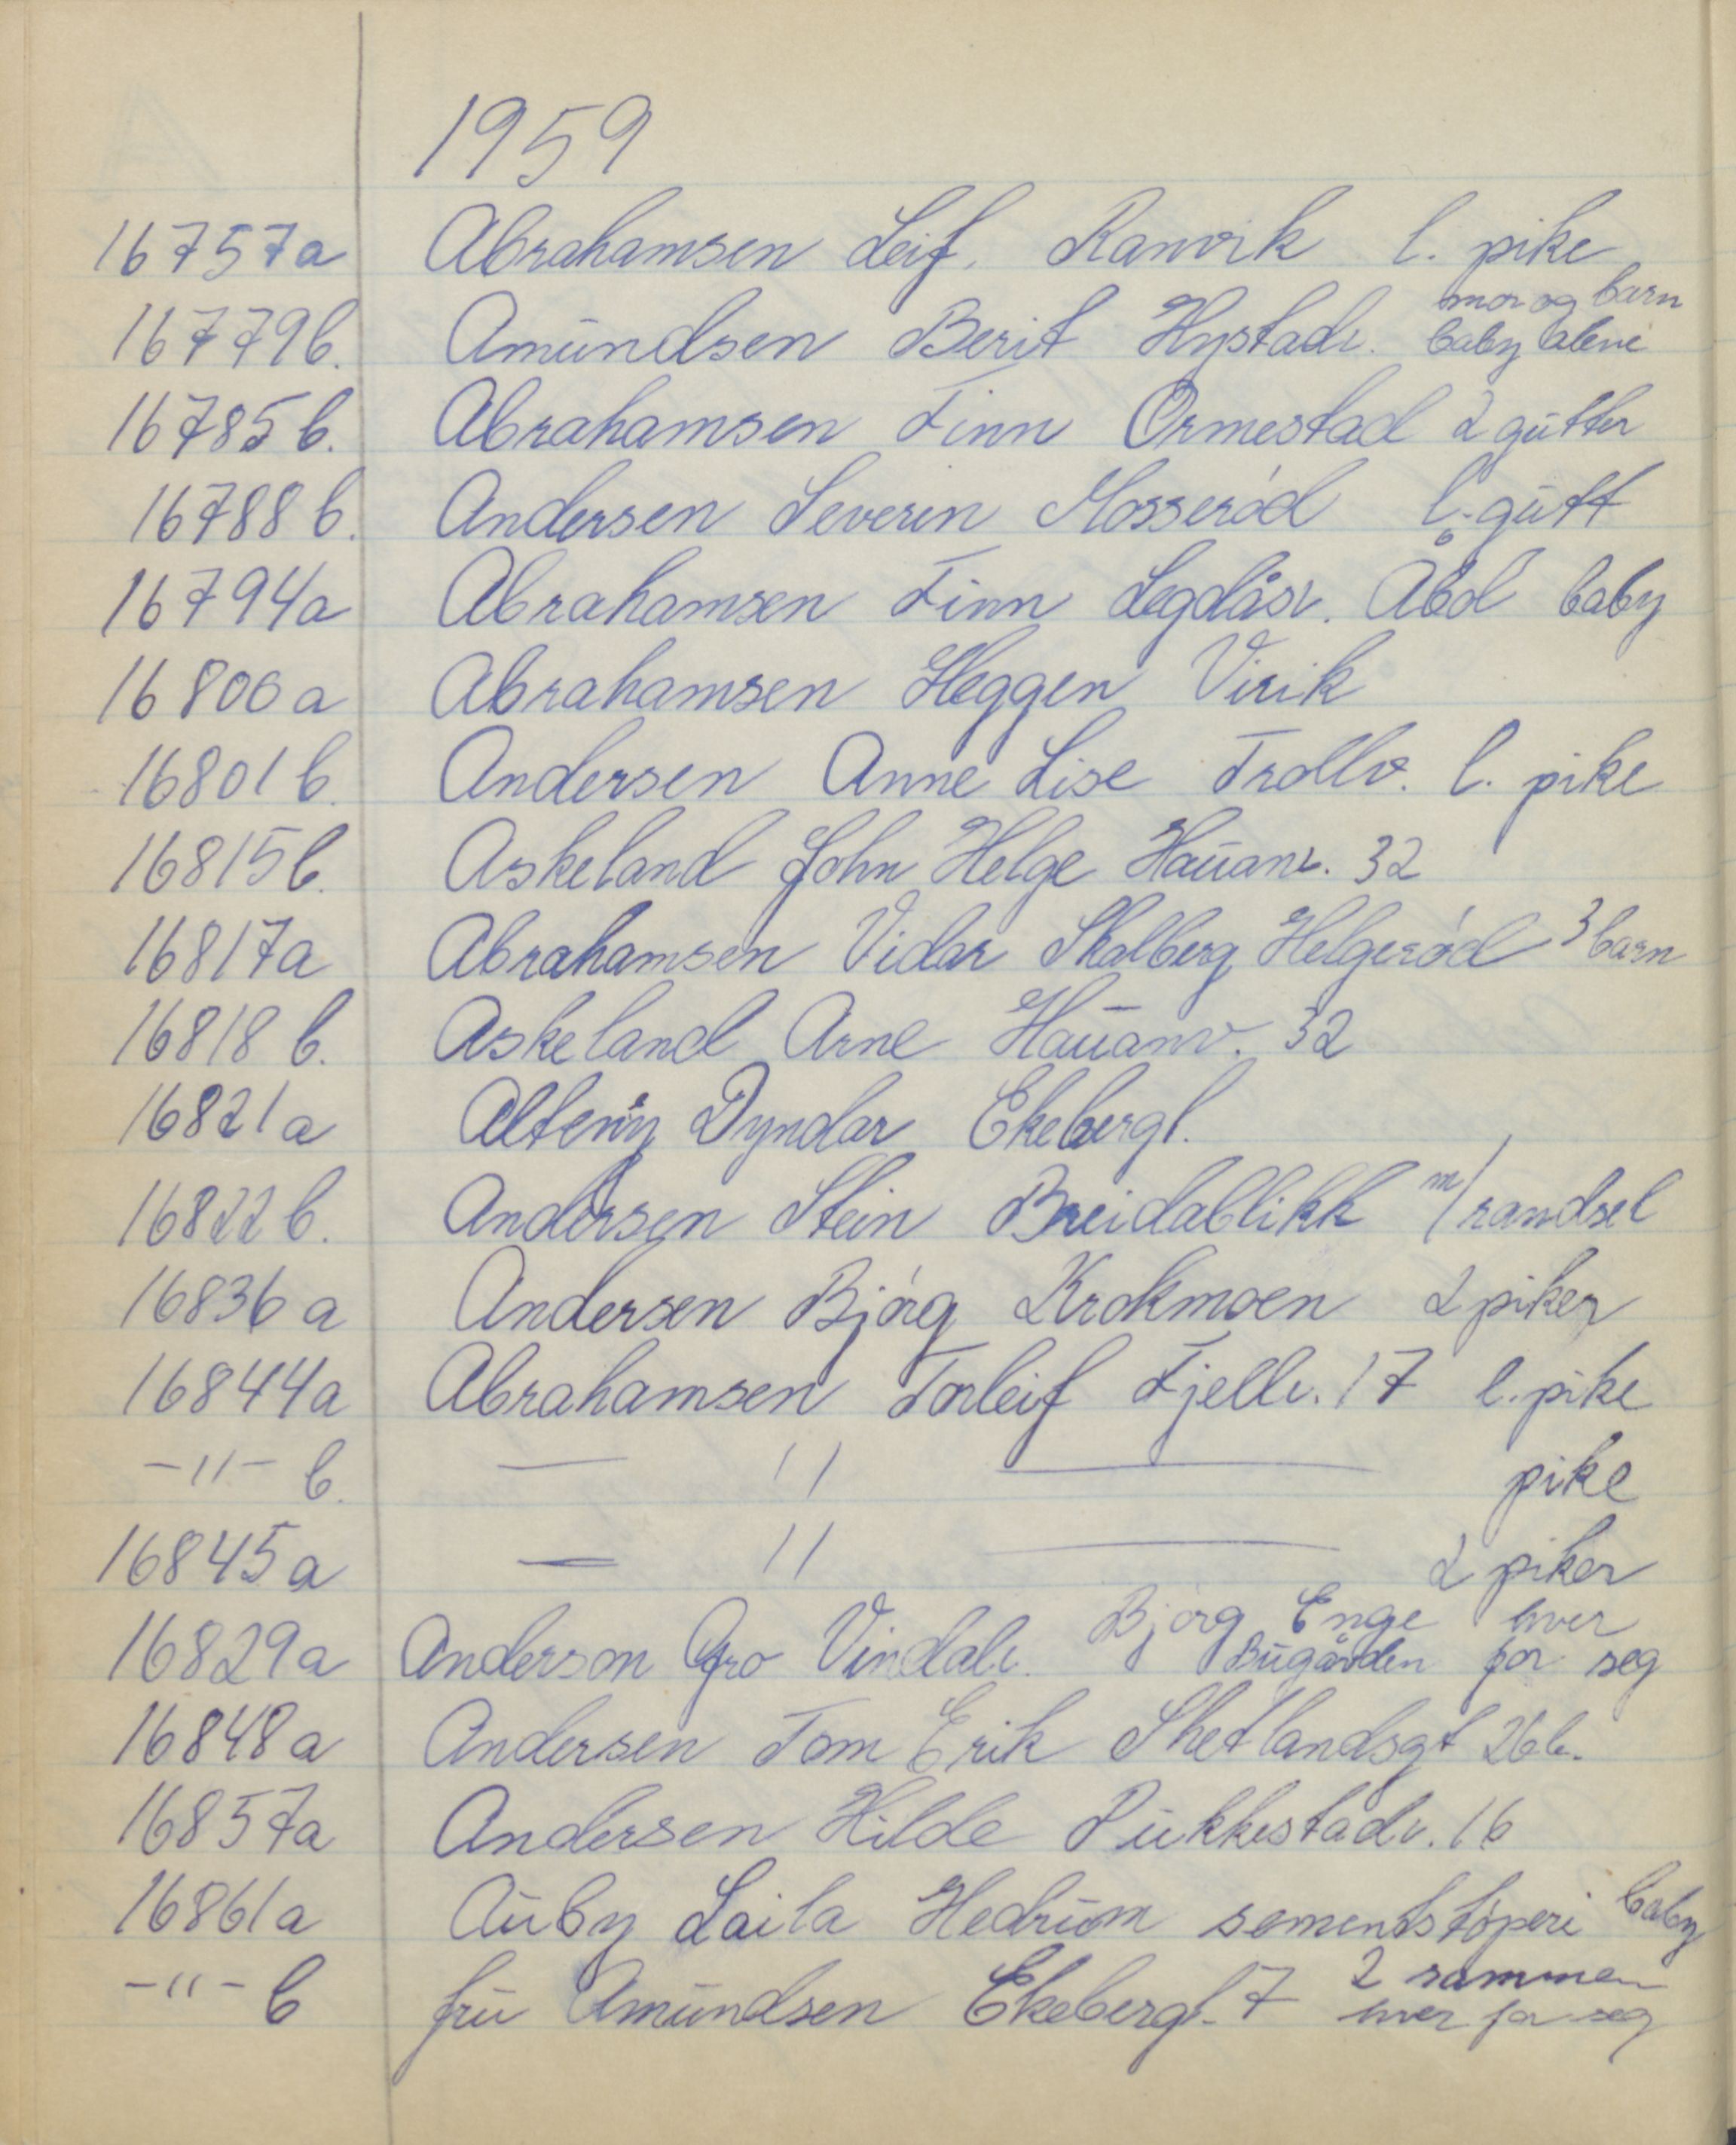 1959
16757a Abrahamsen Leif. Ranvik l. pike
16779b. Amundsen Berit Hystadv. mor og barn baby alene
16785b. Abrahamsen Finn Ormestad 2 gutter
16788b. Andersen Severin Mosserød l. gutt
16794a Abrahamsen Finn Legdåsv. Åbol baby
16800a Abrahamsen Heggen Virik
16801b. Andersen Anne Lise Trollv. l. pike
16815b. Askeland John Helge Hauanv. 32
16817a Abrahamsen Vidar Skalberg Helgerød 3 barn
16818b. Askeland Arne Hauanv. 32
16821a Dyndar Ekebergl.
16822b. Andersen Stein Breidablikk m/randsel
16836a Andersen Bjørg Krokmoen 2 piker
16844a Abrahamsen Torleif Fjellv. 17 l. pike
-"- b. — " — pike
16845a — " — 2 piker
16829a Anderson Gro Vindalv. Bjørg Enge Bugården hver for seg
16848a Andersen Tom Erik Shetlandsgt 26b.
16857a Andersen Hilde Pukkestadv. 16
16861a Auby Laila Hedrum sementstøperi baby
-"- b fru Amundsen Ekebergl. 7 2 sammen hver for seg